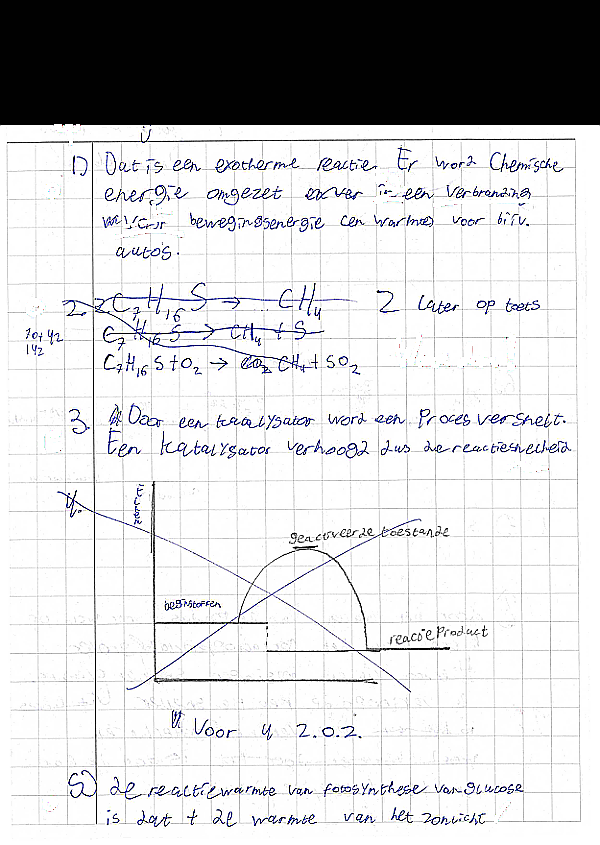 1) Dat is een exotherme reactie. Er word Chemische
energie omgezet in een Verbranding
bewegingsenergie (en warmte) voor bijv.
autos.
2. 2C7H16S → CH4 2 later op toets
C7H16S → CH4 + S
C7H16S + O2 → CO2 CH4 + SO2
3. Door een kaalysator word een Proces versnelt.
Een katalysator verhoogd dus de reactiesnelheid
4.
geactiveerde toestande
beginstoffen
reactie Product
Voor 4 z.o.z.
5) de reactiewarmte van fotosynthese van glucose
is dat + de warmte van het zonlicht